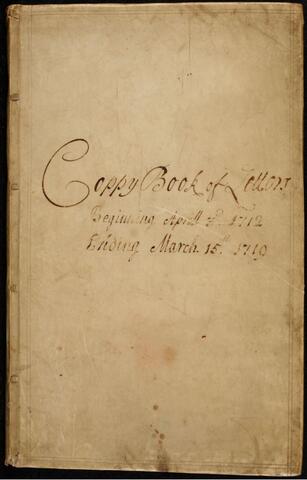 Coppy Book of Letters
Beginning Aprill 1712
Ending March 15th 1719